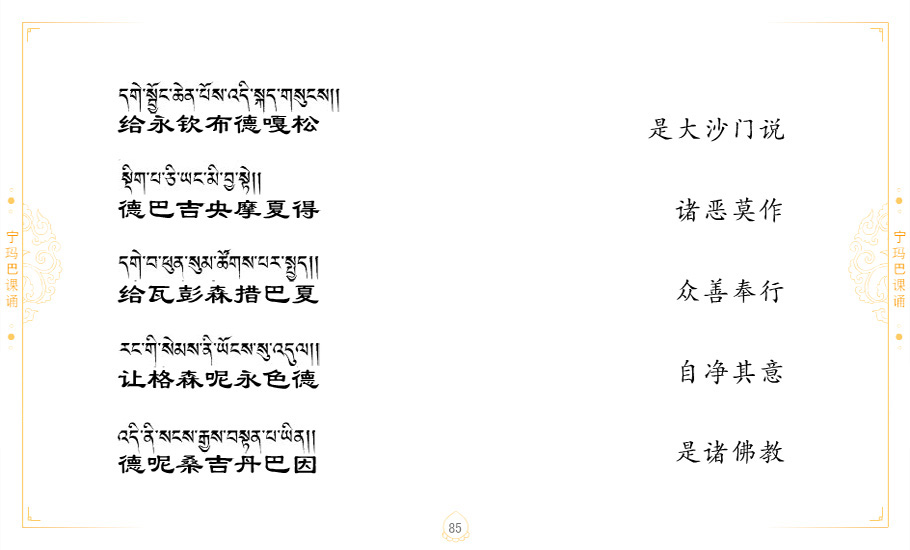 དགེ་སྦྱོང་ཆེན་པོས་འདི་སྐད་གསུངས།།
给永钦布德嘎松
是大沙门说
སྡིག་པ་ཅི་ཡང་མི་བྱ་སྟེ།།
德巴吉央摩夏得
诸恶莫作
དགེ་བ་ཕུན་སུམ་ཚོགས་པར་སྤྱད།།
给瓦彭森措巴夏
众善奉行
རང་གི་སེམས་ནི་ཡོངས་སུ་འདུལ།།
让格森呢永色德
自净其意
འདི་ནི་སངས་རྒྱས་བསྟན་པ་ཡིན།།
德呢桑吉丹巴因
是诸佛教
宁玛巴课诵
宁玛巴课诵
85